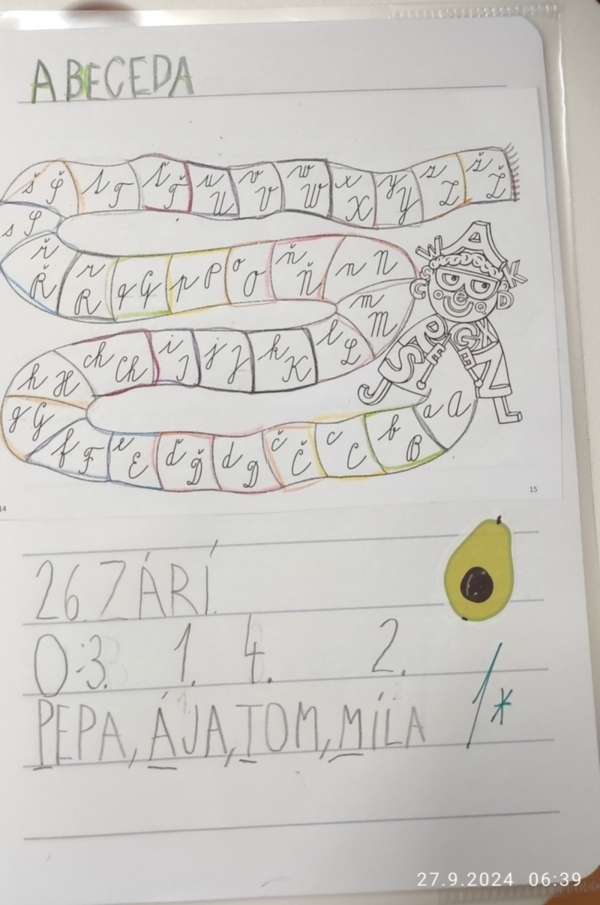 ABECEDA
š Š t T ť Ť u U v V w W x X y Y z Z ž Ž
s S
ř Ř r R q Q p P o O ň Ň n N
m M
h H ch Ch i I j J k K l L
g G
f F e E ď Ď d D č Č c C b B a A
14
15
26. ZÁRÍ
0:3. 1. 4. 2.
PEPA, ÁJA, TOM, MÍLA
1*
27.9.2024 06:39